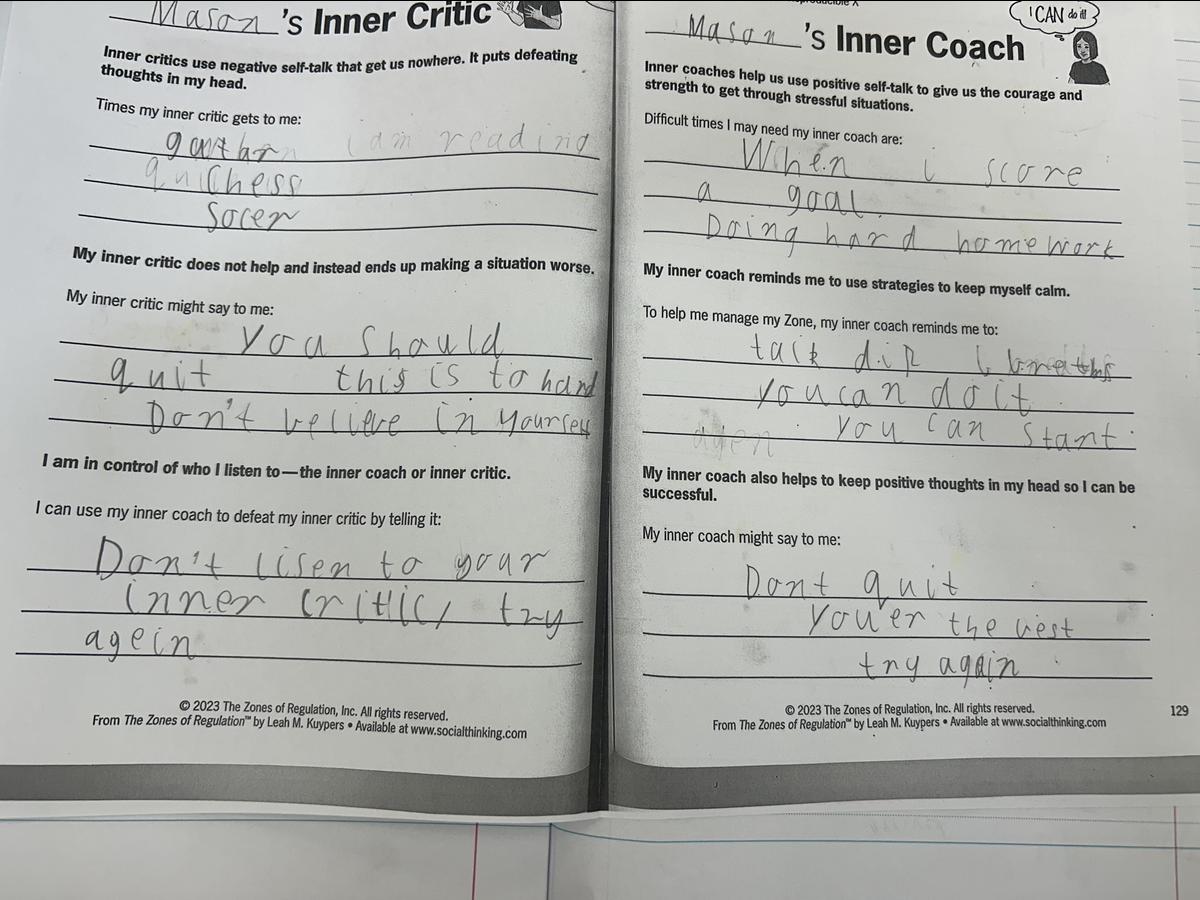 Mason 's Inner Critic
Inner critics use negative self-talk that get us nowhere. It puts defeating
thoughts in my head.
Times my inner critic gets to me:
i am reading
Chess
Socer
My inner critic does not help and instead ends up making a situation worse.
My inner critic might say to me:
you should
quit this is to hard
Don't believe in yourself
I am in control of who I listen to—the inner coach or inner critic.
I can use my inner coach to defeat my inner critic by telling it:
Don't lisen to your
inner critic, try
agein
© 2023 The Zones of Regulation, Inc. All rights reserved.
From The Zones of Regulation™ by Leah M. Kuypers • Available at www.socialthinking.com
I CAN do it!
Mason 's Inner Coach
Inner coaches help us use positive self-talk to give us the courage and
strength to get through stressful situations.
Difficult times I may need my inner coach are:
When i score
a goal.
Doing hard homework
My inner coach reminds me to use strategies to keep myself calm.
To help me manage my Zone, my inner coach reminds me to:
you can do it
agen you can start
My inner coach also helps to keep positive thoughts in my head so I can be
successful.
My inner coach might say to me:
Dont quit
you'er the best
try again
© 2023 The Zones of Regulation, Inc. All rights reserved.
From The Zones of Regulation™ by Leah M. Kuypers • Available at www.socialthinking.com
129